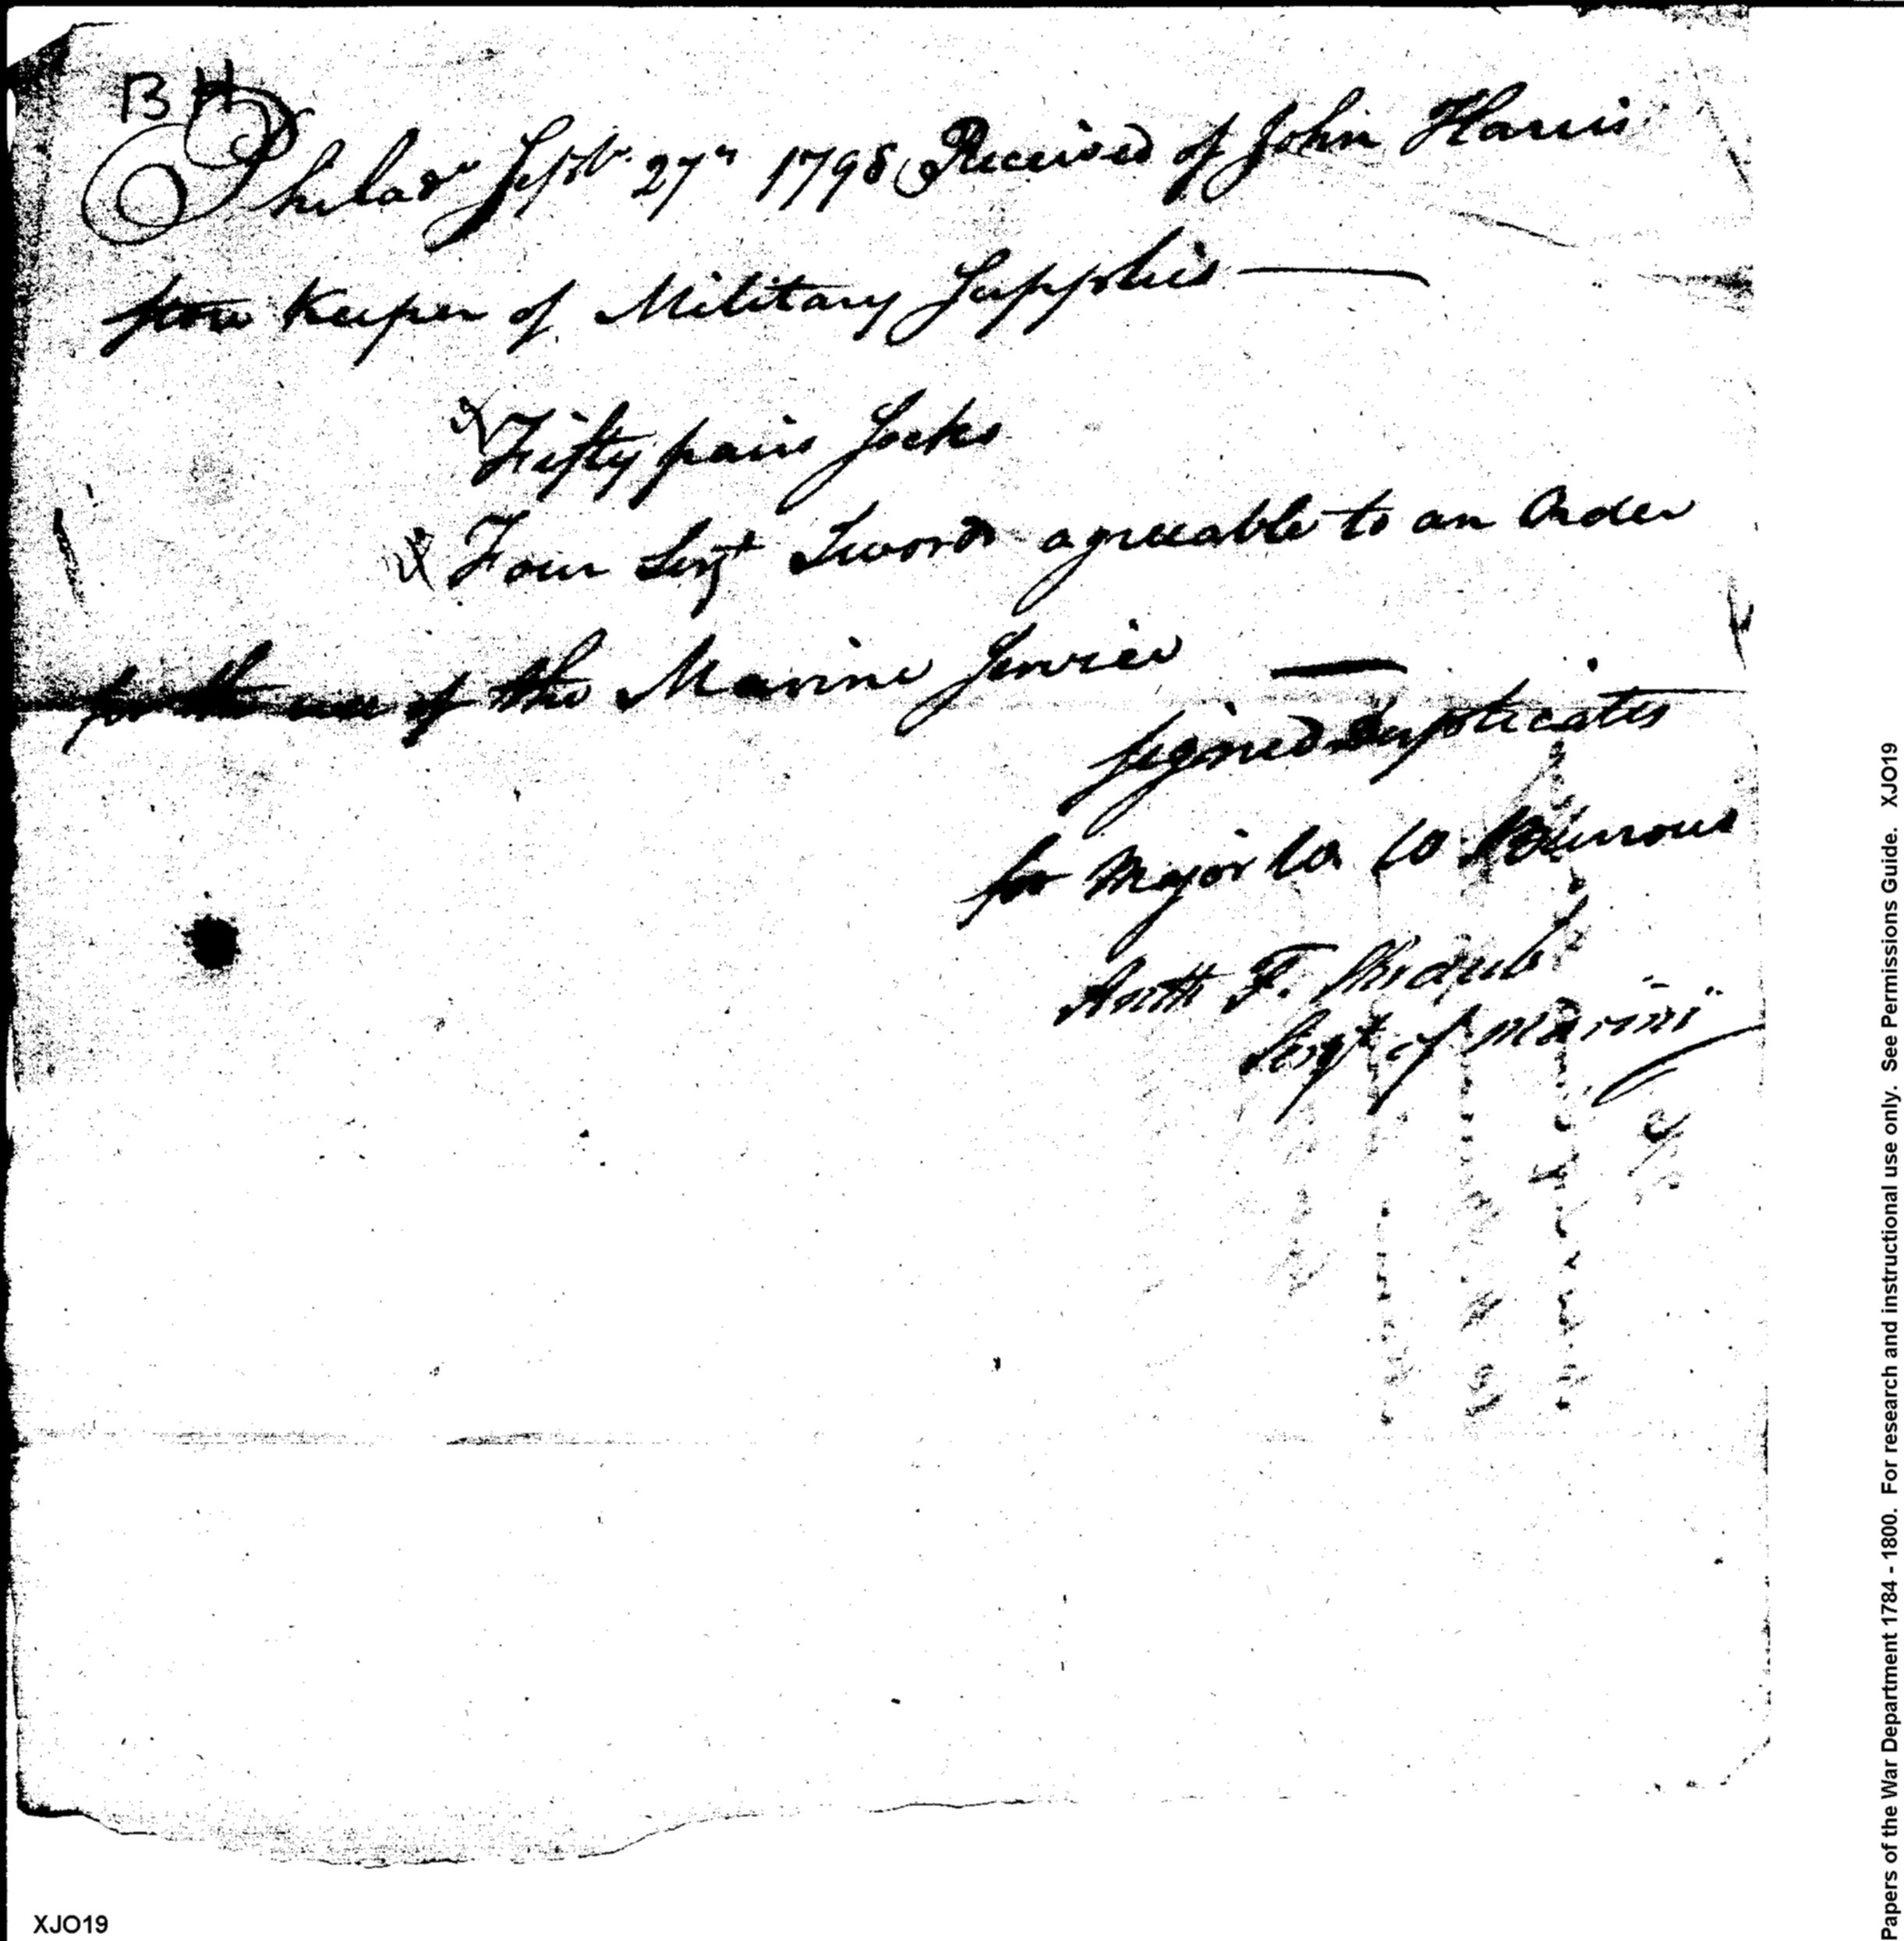 BH
Philada Septr 27th 1798 Received of John Harris
store Keeper of Military Supplies
Fifty pairs Socks
Four Sergt Swords agreeable to an Order
for the use of the Marine Service
signed Duplicates
for Major W W Burrows
Anth F.
Sergt of Marins
XJO19
Papers of the War Department 1784 - 1800. For research and instructional use only. See Permissions Guide. XJO19